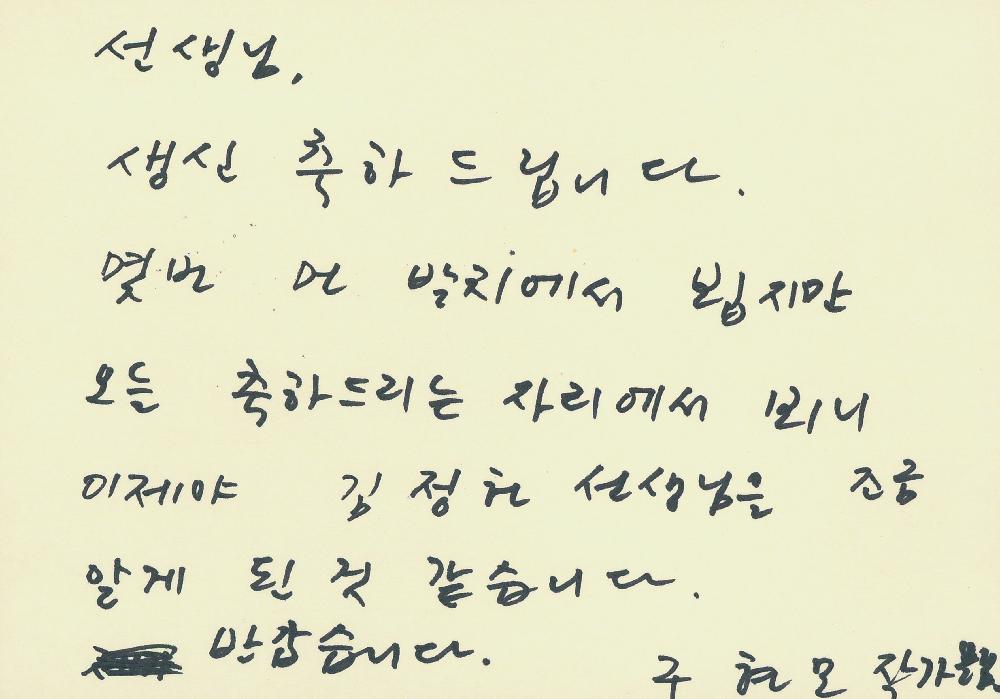 선생님,
생신 축하 드립니다.
몇번 먼 발치에서 뵙지만
오늘 축하드리는 자리에서 뵈니
이제야 김정헌 선생님을 조금
알게 된 것 같습니다.
반갑습니다.
구현모 작가